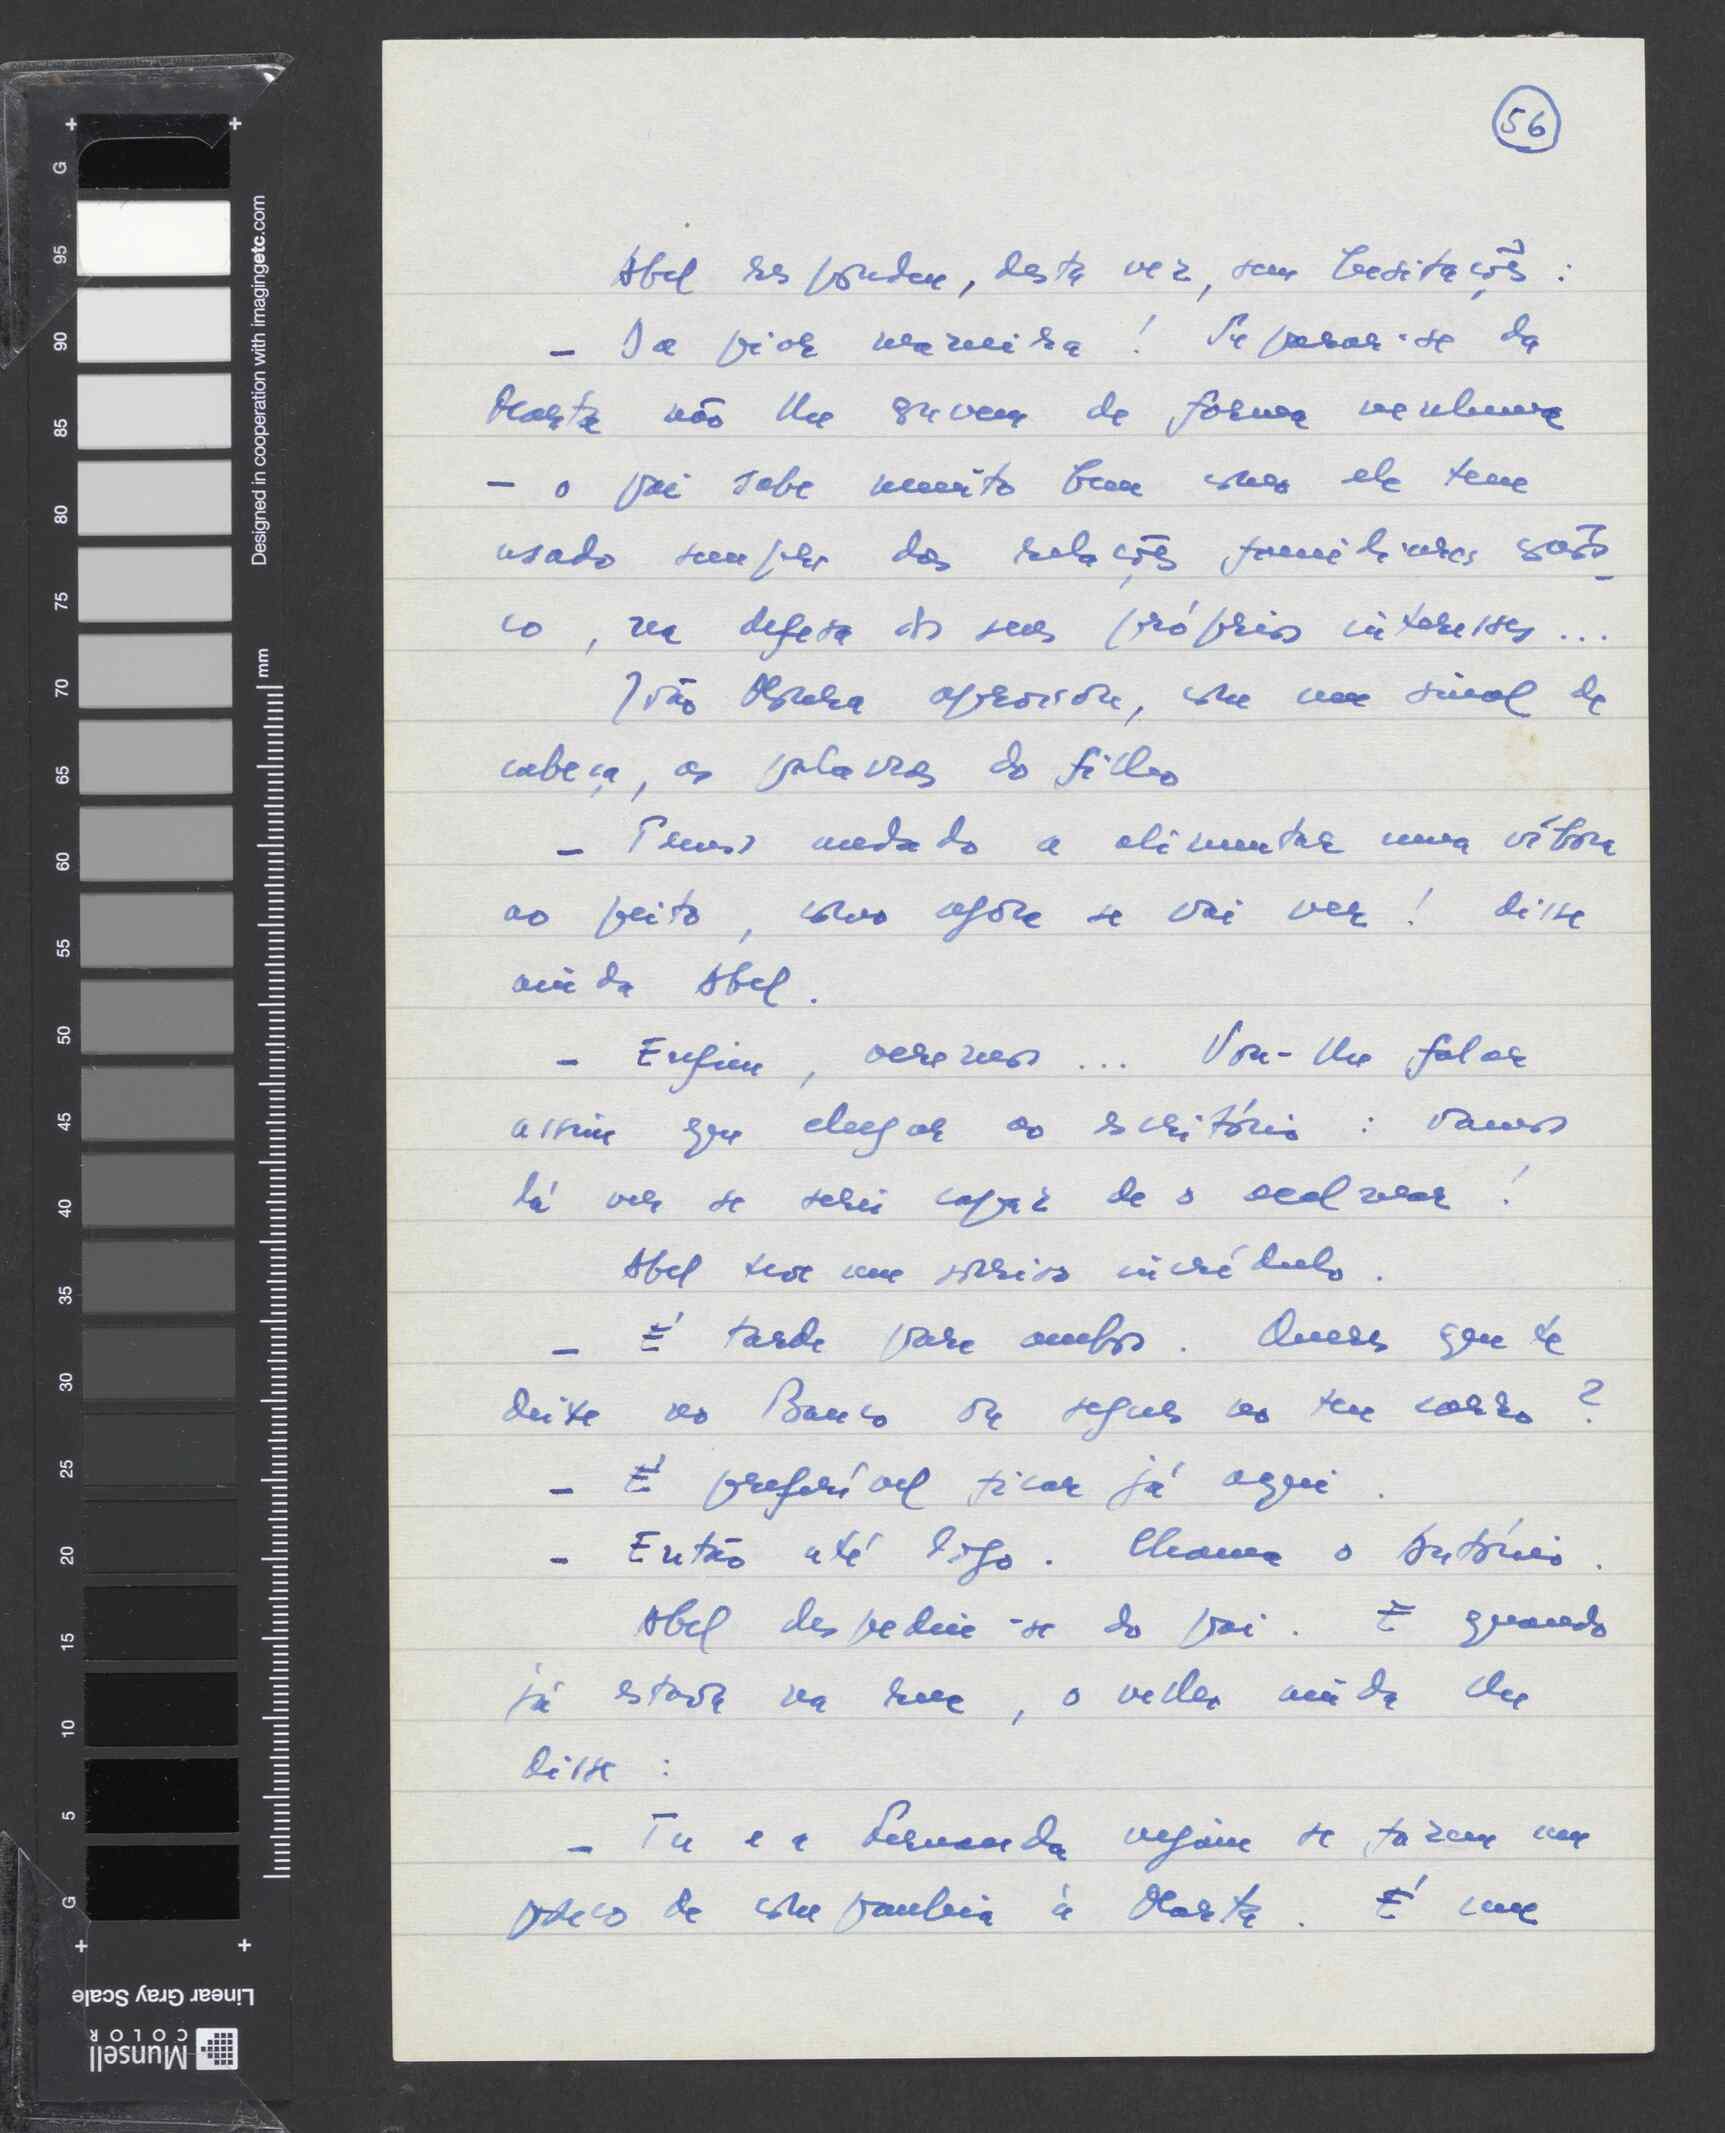 56
Abel respondeu, desta vez, sem hesitações :
– Da pior maneira ! Separar-se da
Marta não lhe convem de forma nenhuma
– o pai sabe muito bem como ele tem
usado sempre das relações familiares
co, na defesa dos seus próprios interesses...
João Moura aprovou, com um sinal de
cabeça, as palavras do filho
– Temos andado a alimentar uma víbora
ao peito, como agora se vai ver ! disse
ainda Abel.
– Enfim, veremos ... Vou-lhe falar
assim que chegar ao escritório : vamos
lá ver se serei capaz de o acalmar !
Abel teve um sorriso incrédulo.
– É tarde para ambos. Queres que te
deixe no Banco ou segues no teu carro ?
– É preferível ficar já aqui.
– Então até logo. Chama o António.
Abel despediu-se do pai. E quando
já estava na rua, o velho ainda lhe
disse :
– Tu e a Fernanda vejam se fazem um
pouco de companhia à Marta. É uma
G
95
90
85
80
75
70
65
60
55
50
45
40
35
30
25
20
15
10
5
G
mm
Designed in cooperation with imagingetc.com
Linear Gray Scale
Munsell
COLOR